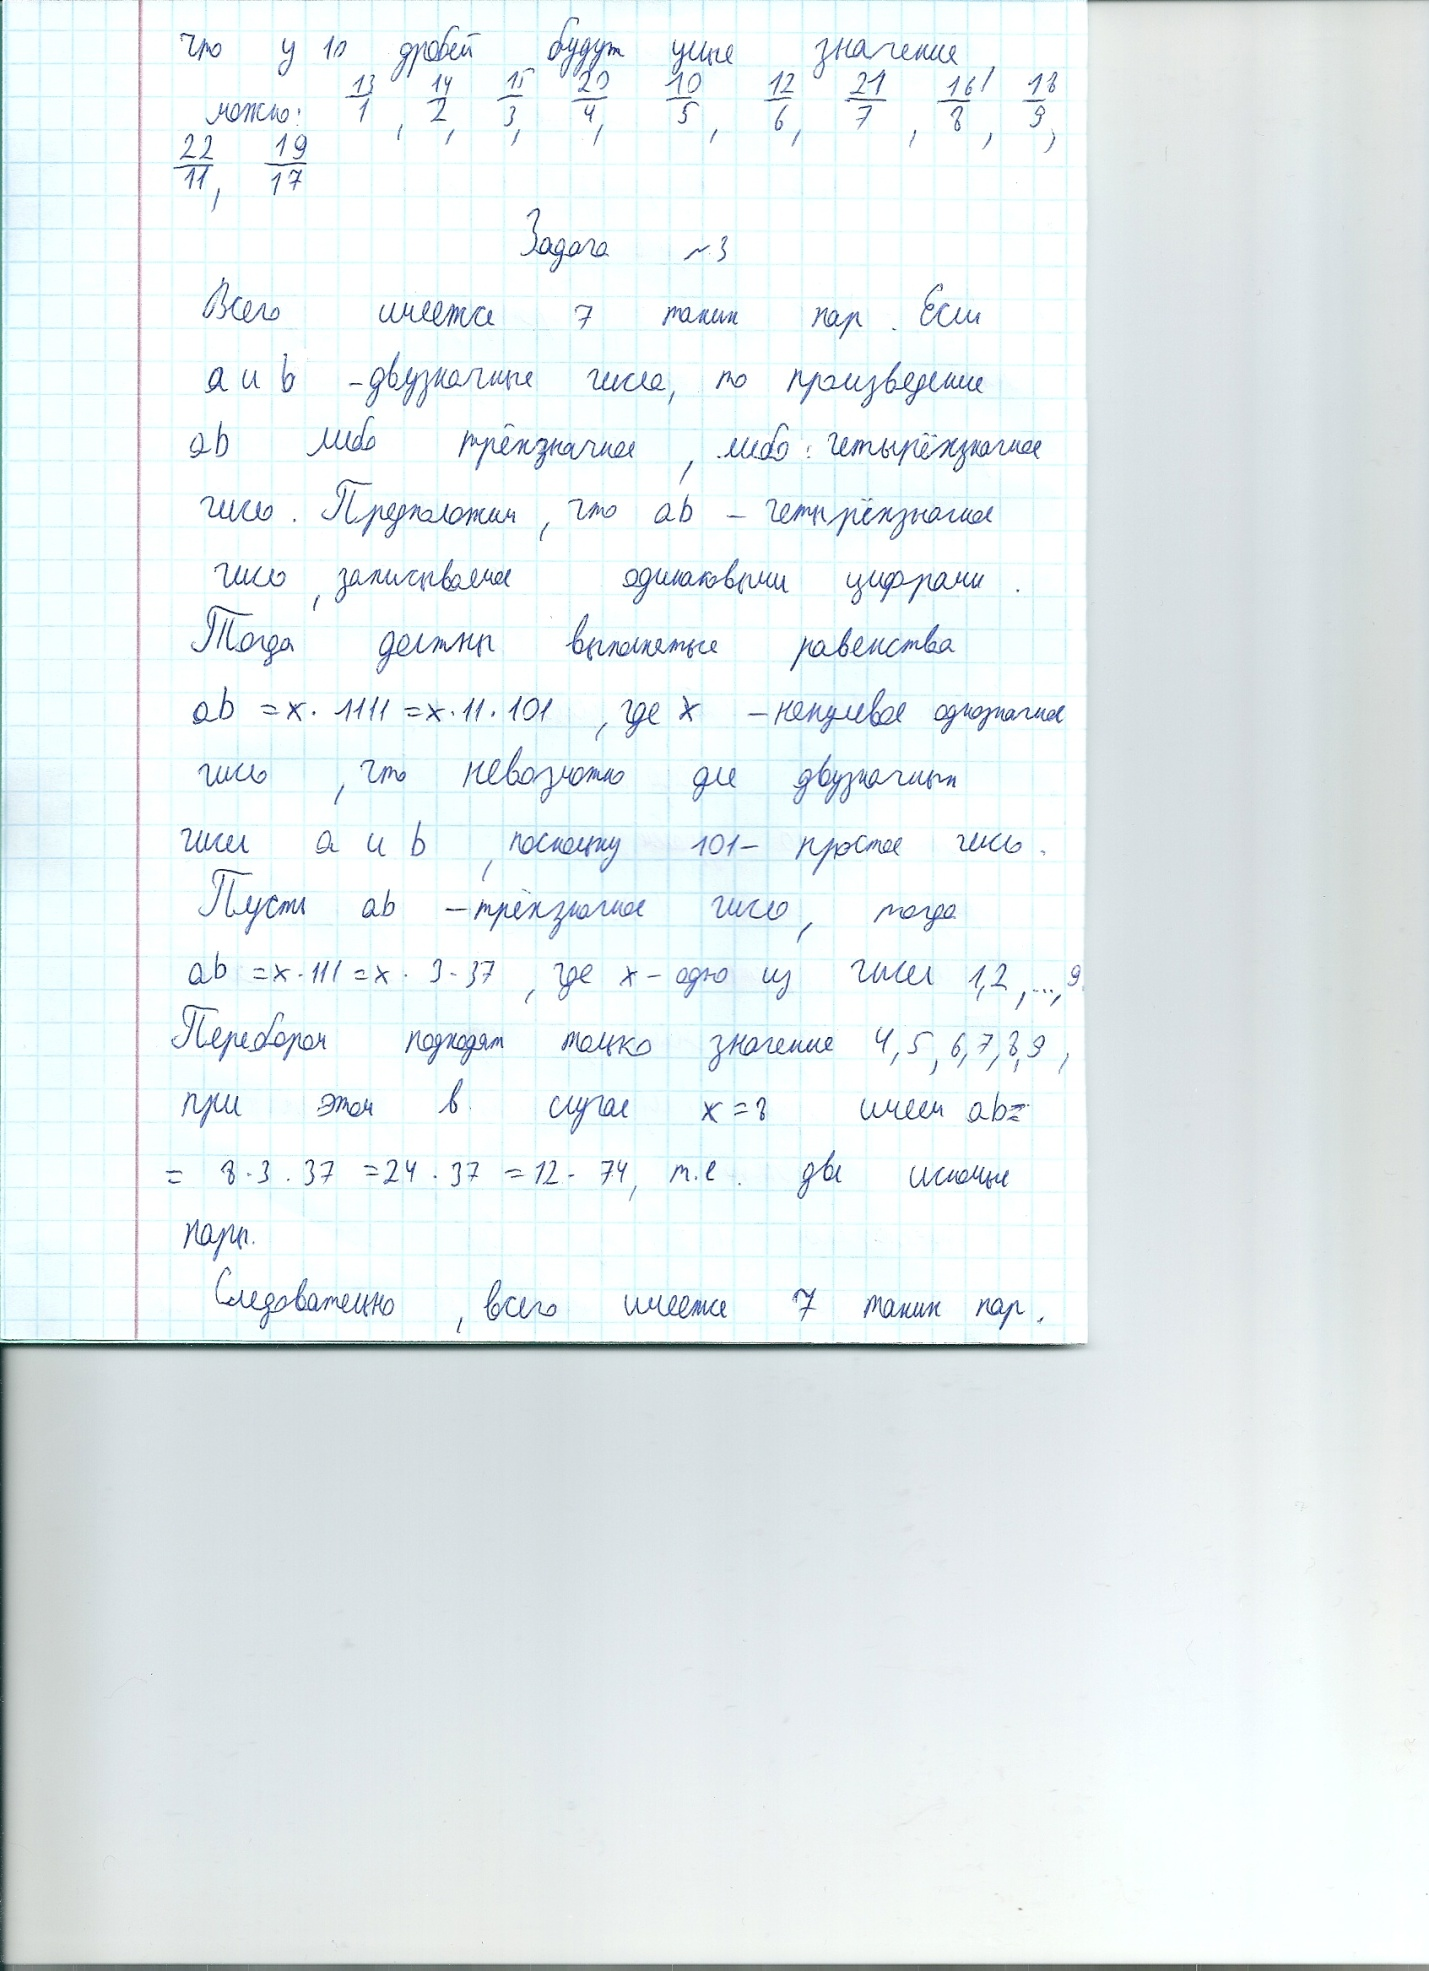 что у 10 дробей будут целые значения,
можно: 13/1, 14/2, 15/3, 20/4, 10/5, 12/6, 21/7, 16/8, 18/9,
22/11, 19/17
Задача № 3
Всего имеется 7 таких пар. Если
a и b – двузначные числа, то произведение
ab либо трёхзначное, либо четырёхзначное
число. Предположим, что ab – четырёхзначное
число, записываемое одинаковыми цифрами.
Тогда должны выполняться равенства
ab = x · 1111 = x · 11 · 101, где x – ненулевое однозначное
число, что невозможно для двузначных
чисел a и b, поскольку 101 – простое число.
Пусть ab – трёхзначное число, тогда
ab = x · 111 = x · 3 · 37, где x – одно из чисел 1, 2, ..., 9.
Перебором подходят только значения 4, 5, 6, 7, 8, 9,
при этом в случае x = 8 имеем ab =
= 8 · 3 · 37 = 24 · 37 = 12 · 74, т.е. две искомые
пары.
Следовательно, всего имеется 7 таких пар.